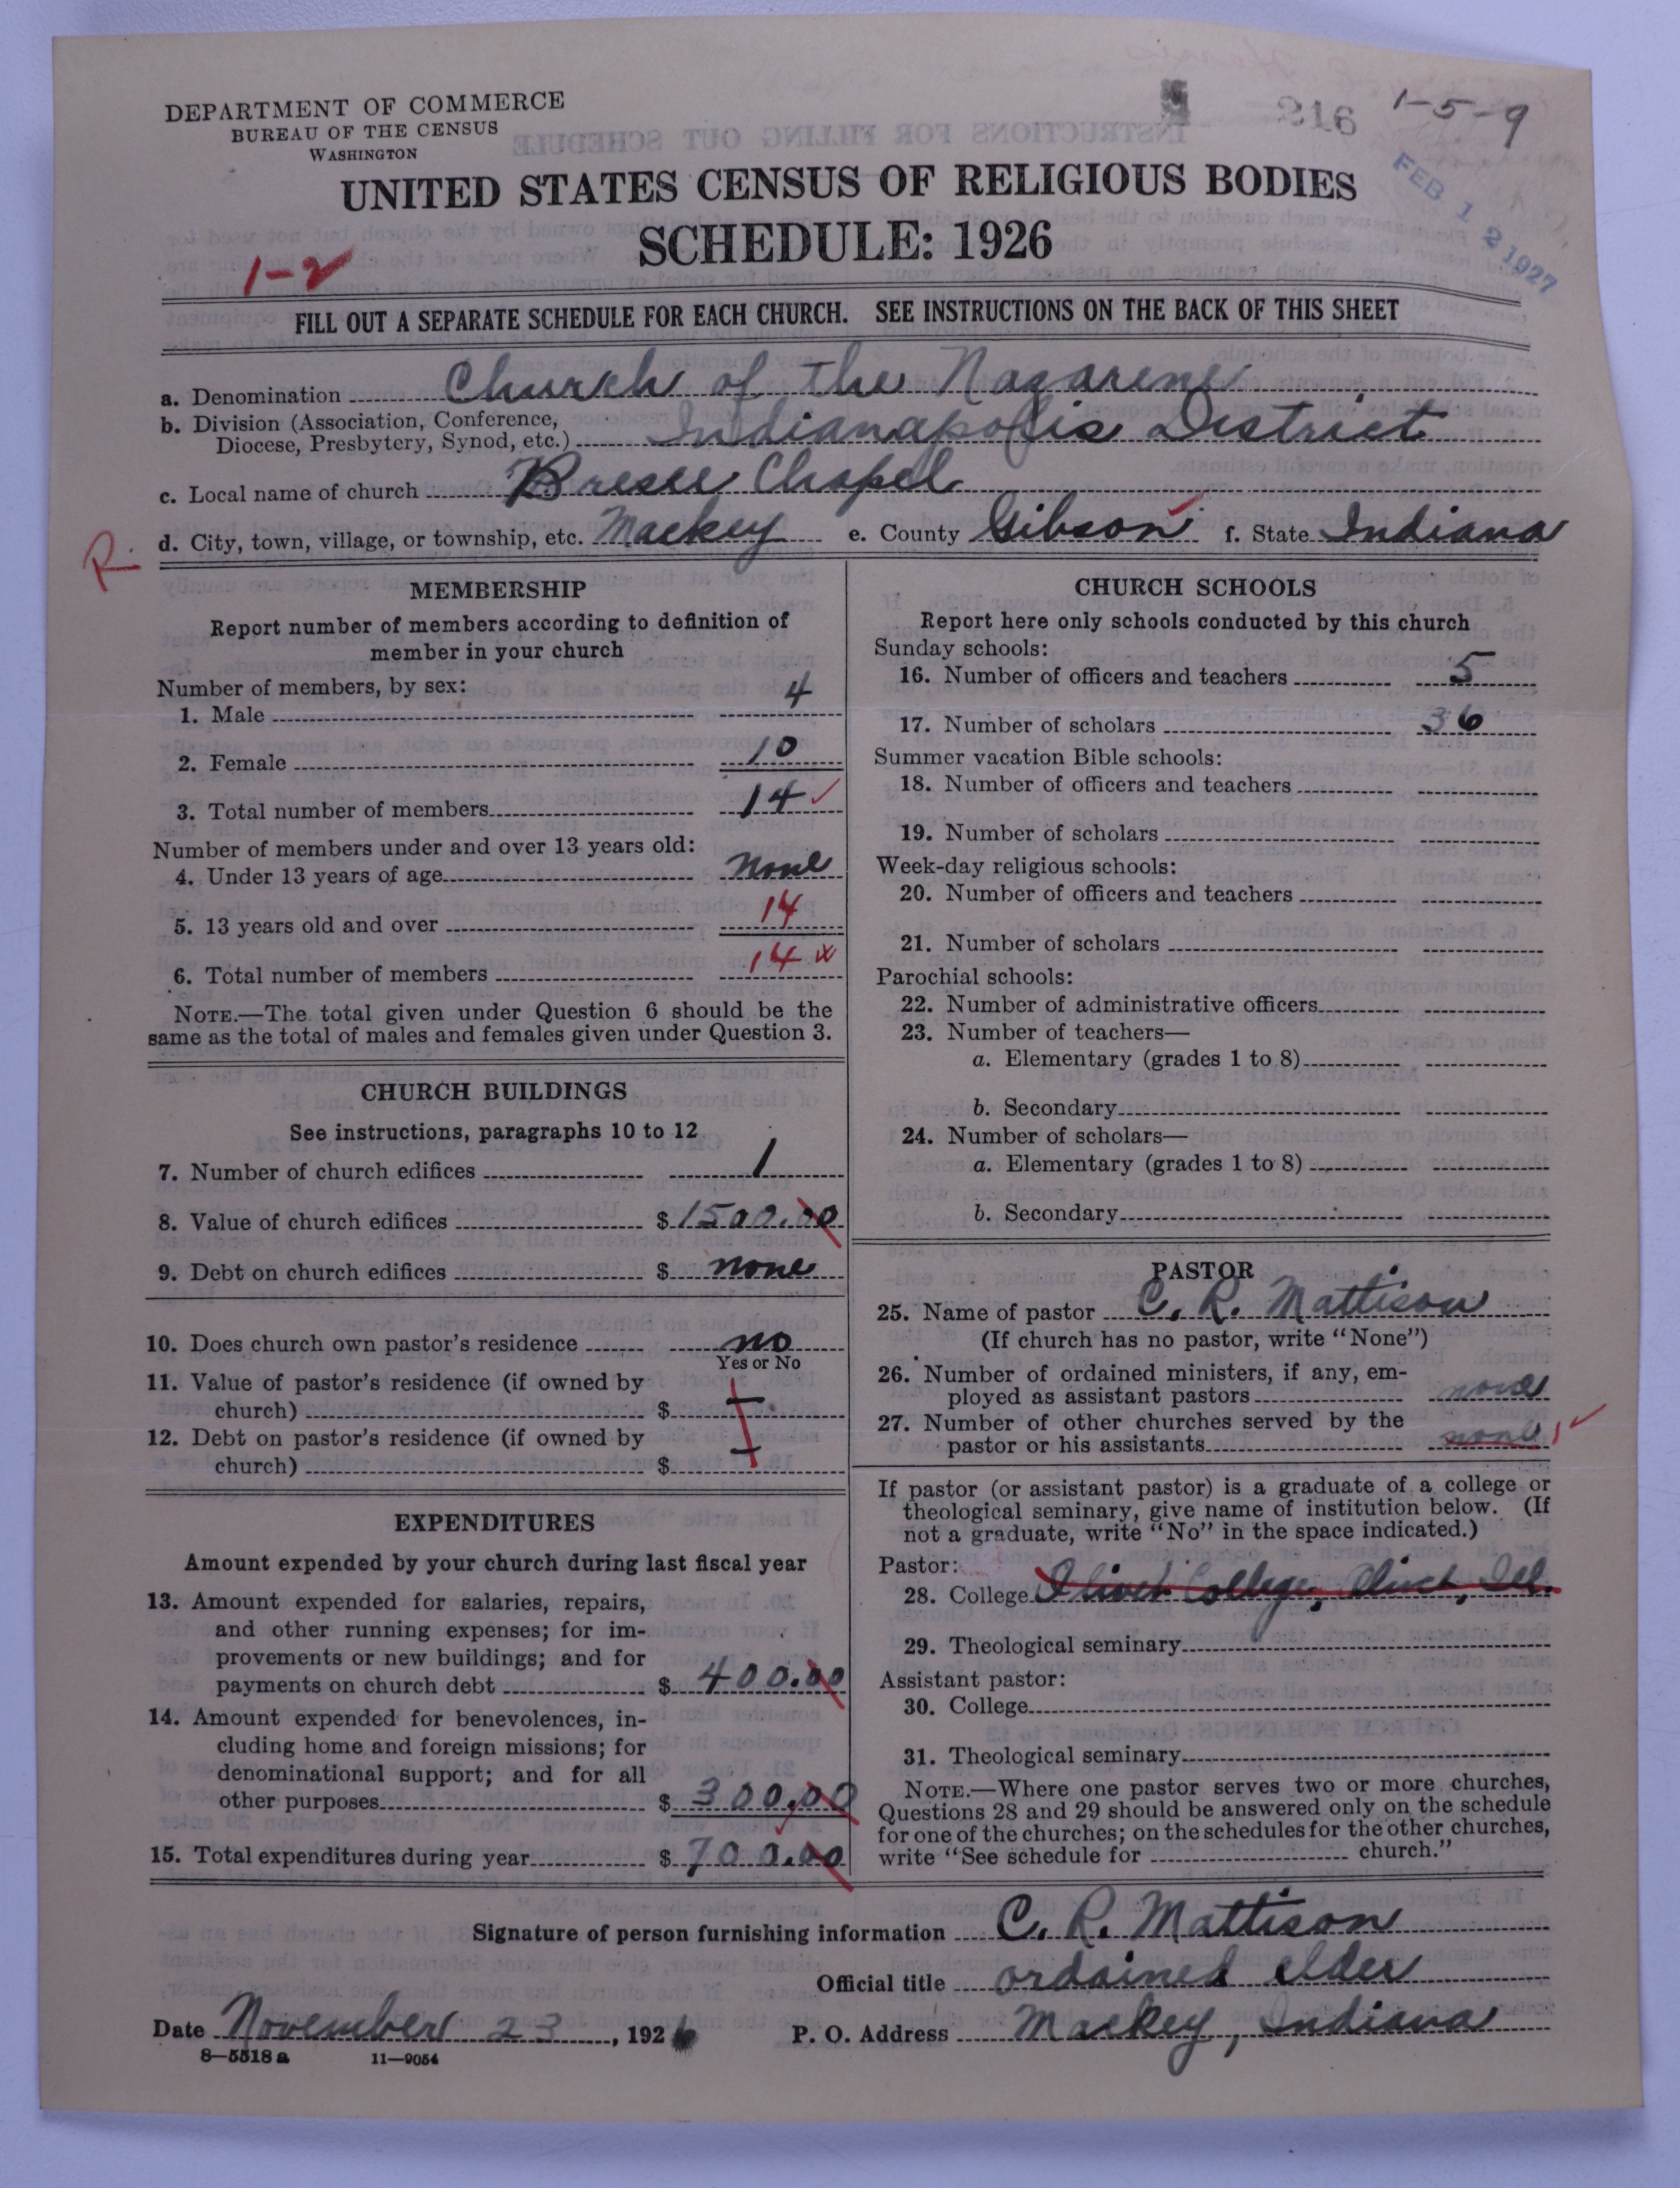 216 1-5-9
DEPARTMENT OF COMMERCE
BUREAU OF THE CENSUS
WASHINGTON
FEB 12 1927
UNITED STATES CENSUS OF RELIGIOUS BODIES
SCHEDULE: 1926
1-2
FILL OUT A SEPARATE SCHEDULE FOR EACH CHURCH. SEE INSTRUCTIONS ON THE BACK OF THIS SHEET
a. Denomination Church of the Nazarene
b. Division (Association, Conference,
Diocese, Presbytery, Synod, etc.) Indianapolis District
c. Local name of church Bresee Chapel
R. d. City, town, village, or township, etc. Mackey e. County Gibson f. State Indiana
MEMBERSHIP
Report number of members according to definition of
member in your church
Number of members, by sex:
1. Male 4
2. Female 10
3. Total number of members 14 ✓
Number of members under and over 13 years old:
4. Under 13 years of age none
5. 13 years old and over 14
6. Total number of members 14 x
NOTE.—The total given under Question 6 should be the
same as the total of males and females given under Question 3.
CHURCH BUILDINGS
See instructions, paragraphs 10 to 12
7. Number of church edifices 1
8. Value of church edifices $ 1500.00
9. Debt on church edifices $ none
10. Does church own pastor's residence no
Yes or No
11. Value of pastor's residence (if owned by
church) $
12. Debt on pastor's residence (if owned by
church) $
EXPENDITURES
Amount expended by your church during last fiscal year
13. Amount expended for salaries, repairs,
and other running expenses; for im-
provements or new buildings; and for
payments on church debt $ 400.00
14. Amount expended for benevolences, in-
cluding home and foreign missions; for
denominational support; and for all
other purposes $ 300.00
15. Total expenditures during year $ 700.00
CHURCH SCHOOLS
Report here only schools conducted by this church
Sunday schools:
16. Number of officers and teachers 5
17. Number of scholars 36
Summer vacation Bible schools:
18. Number of officers and teachers
19. Number of scholars
Week-day religious schools:
20. Number of officers and teachers
21. Number of scholars
Parochial schools:
22. Number of administrative officers
23. Number of teachers—
a. Elementary (grades 1 to 8)
b. Secondary
24. Number of scholars—
a. Elementary (grades 1 to 8)
b. Secondary
PASTOR
25. Name of pastor C. R. Mattison
(If church has no pastor, write "None")
26. Number of ordained ministers, if any, em-
ployed as assistant pastors none
27. Number of other churches served by the
pastor or his assistants none ✓
If pastor (or assistant pastor) is a graduate of a college or
theological seminary, give name of institution below. (If
not a graduate, write "No" in the space indicated.)
Pastor:
28. College Olivet College, Olivet, Ill.
29. Theological seminary
Assistant pastor:
30. College
31. Theological seminary
NOTE.—Where one pastor serves two or more churches,
Questions 28 and 29 should be answered only on the schedule
for one of the churches; on the schedules for the other churches,
write "See schedule for church."
Signature of person furnishing information C. R. Mattison
Official title ordained elder
Date November 23, 1926 P. O. Address Mackey, Indiana
8—5518 a 11—9054